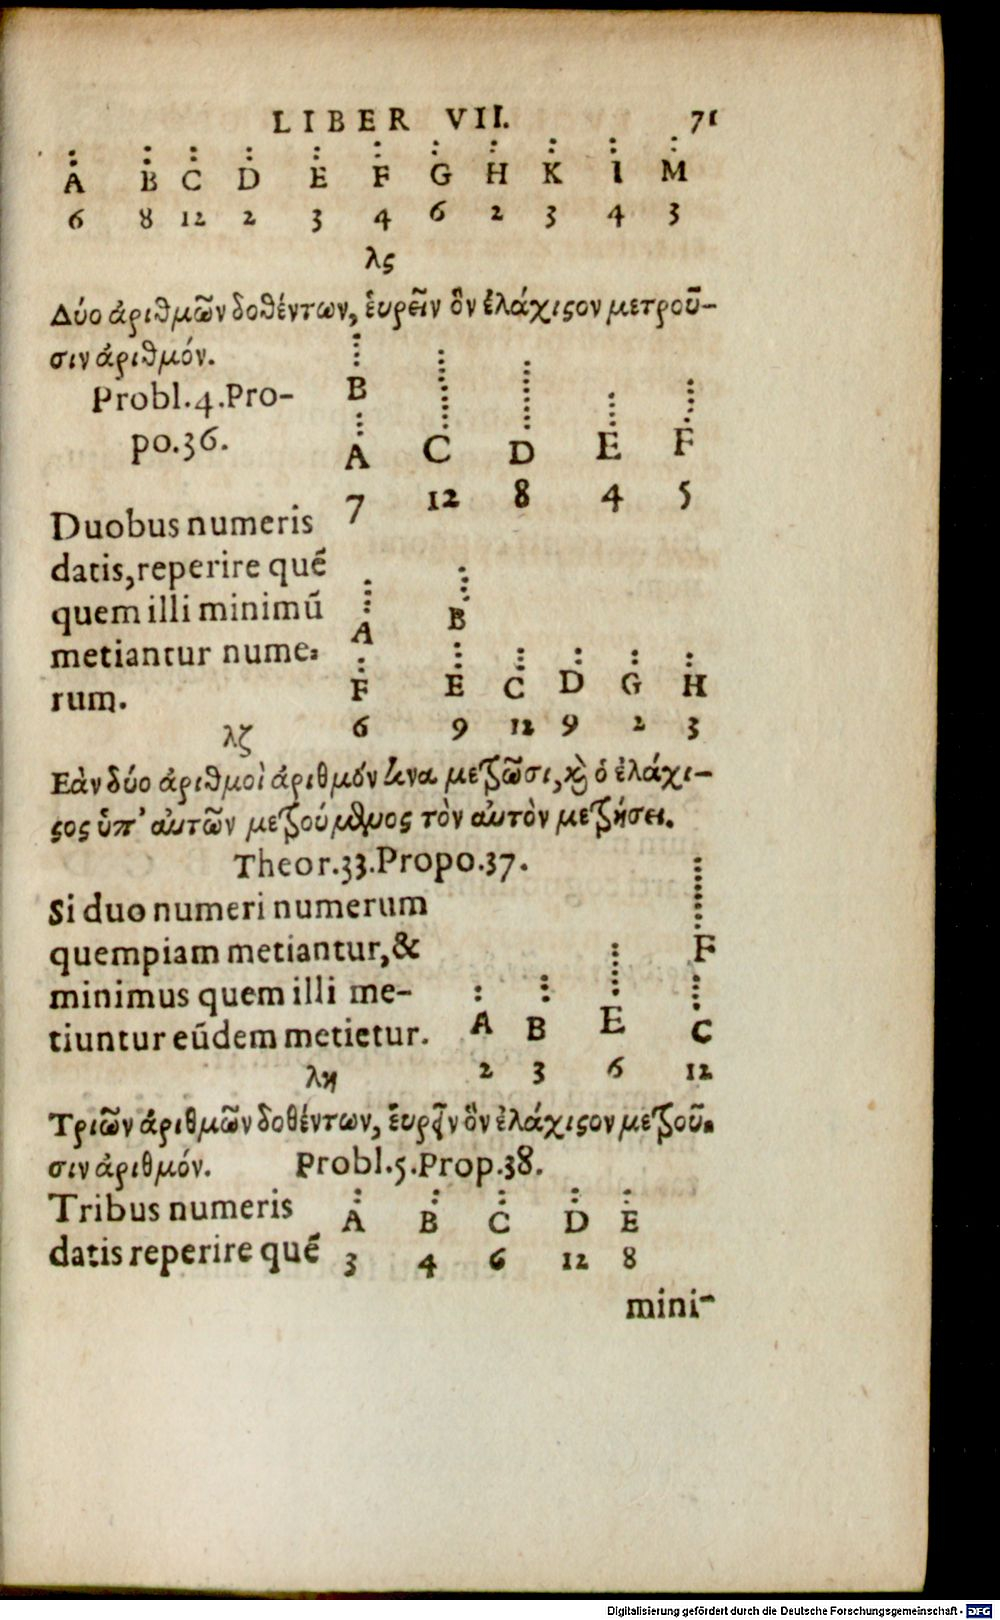 LIBER VII. 71
A B C D E F G H K I M
6 8 12 2 3 4 6 2 3 4 3
λϛ
Δύο ἀριθμῶν δοθέντων, ἑυρεῖν ὃν ἐλάχιϛον μετροῦ-
σιν ἀριθμόν.
Probl.4.Pro-
po.36.
B
A C D E F
7 12 8 4 5
Duobus numeris
datis, reperire quē
quem illi minimū
metiantur nume-
rum.
A B
F E C D G H
6 9 12 9 2 3
λζ
Εὰν δύο ἀριθμοὶ ἀριθμόν τινα μετρῶσι, ϗ ὁ ἐλάχι-
ϛος ὑπ' αὐτῶν μετρούμενος τὸν αὐτὸν μετρήσει.
Theor.33.Propo.37.
Si duo numeri numerum
quempiam metiantur, &
minimus quem illi me-
tiuntur eūdem metietur.
F
A B E C
2 3 6 12
λη
Τριῶν ἀριθμῶν δοθέντων, ἑυρεῖν ὃν ἐλάχιϛον μετροῦ-
σιν ἀριθμόν. Probl.5.Prop.38.
Tribus numeris
datis reperire quē
A B C D E
3 4 6 12 8
mini-
Digitalisierung gefördert durch die Deutsche Forschungsgemeinschaft - DFG